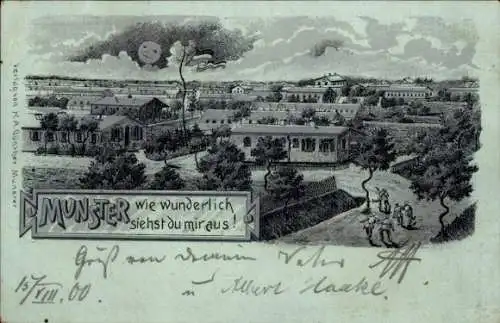 MUNSTER wie wunderlich
siehst du mir aus!
Gruß von deinem Vater
15/VIII. 00
u Albert Haake.
Verlag von H.